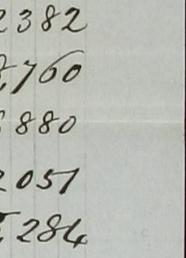 2382
,760
880
2051
,284